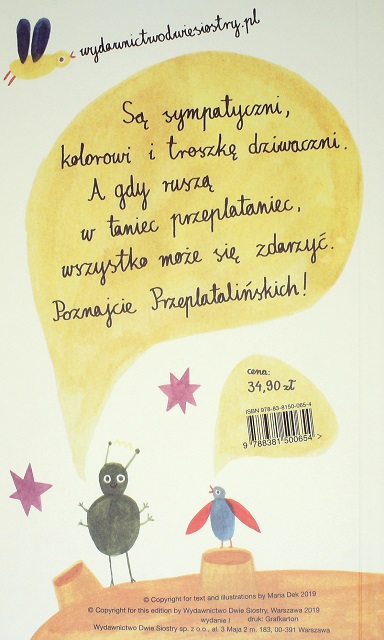 wydawnictwodwiesiostry.pl
Są sympatyczni,
kolorowi i troszkę dziwaczni.
A gdy ruszą
w taniec przeplataniec,
wszystko może się zdarzyć.
Poznajcie Przeplatalińskich!
cena:
34,90 zł
ISBN 978-83-8150-065-4
9 788381 500654 >
© Copyright for text and illustrations by Maria Dek 2019
© Copyright for this edition by Wydawnictwo Dwie Siostry, Warszawa 2019
wydanie I druk: Grafkarton
Wydawnictwo Dwie Siostry sp. z o.o., al. 3 Maja 2 m. 183, 00-391 Warszawa